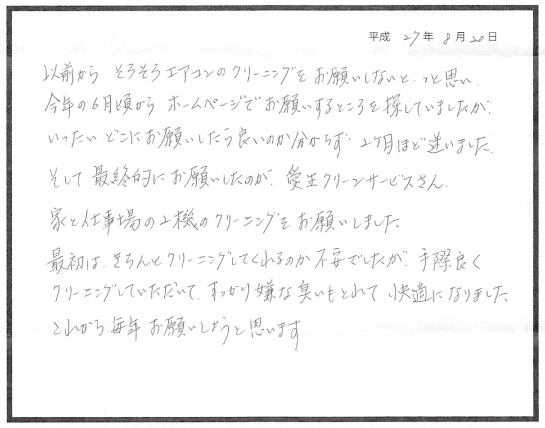 平成 27年 8月 20日
以前から そろそろエアコンのクリーニングを お願いしないと、っと思い、
今年の6月頃から ホームページでお願いするところを探していましたが、
いったい どこにお願いしたら良いのか分からず 2ヶ月ほど迷いました。
そして 最終的にお願いしたのが、愛生クリーンサービスさん。
家と仕事場の2機のクリーニングをお願いしました。
最初は、きちんとクリーニングしてくれるのか不安でしたが、手際良く
クリーニングしていただいて、すっかり嫌な臭いもとれて、快適になりました。
これから毎年お願いしようと思います